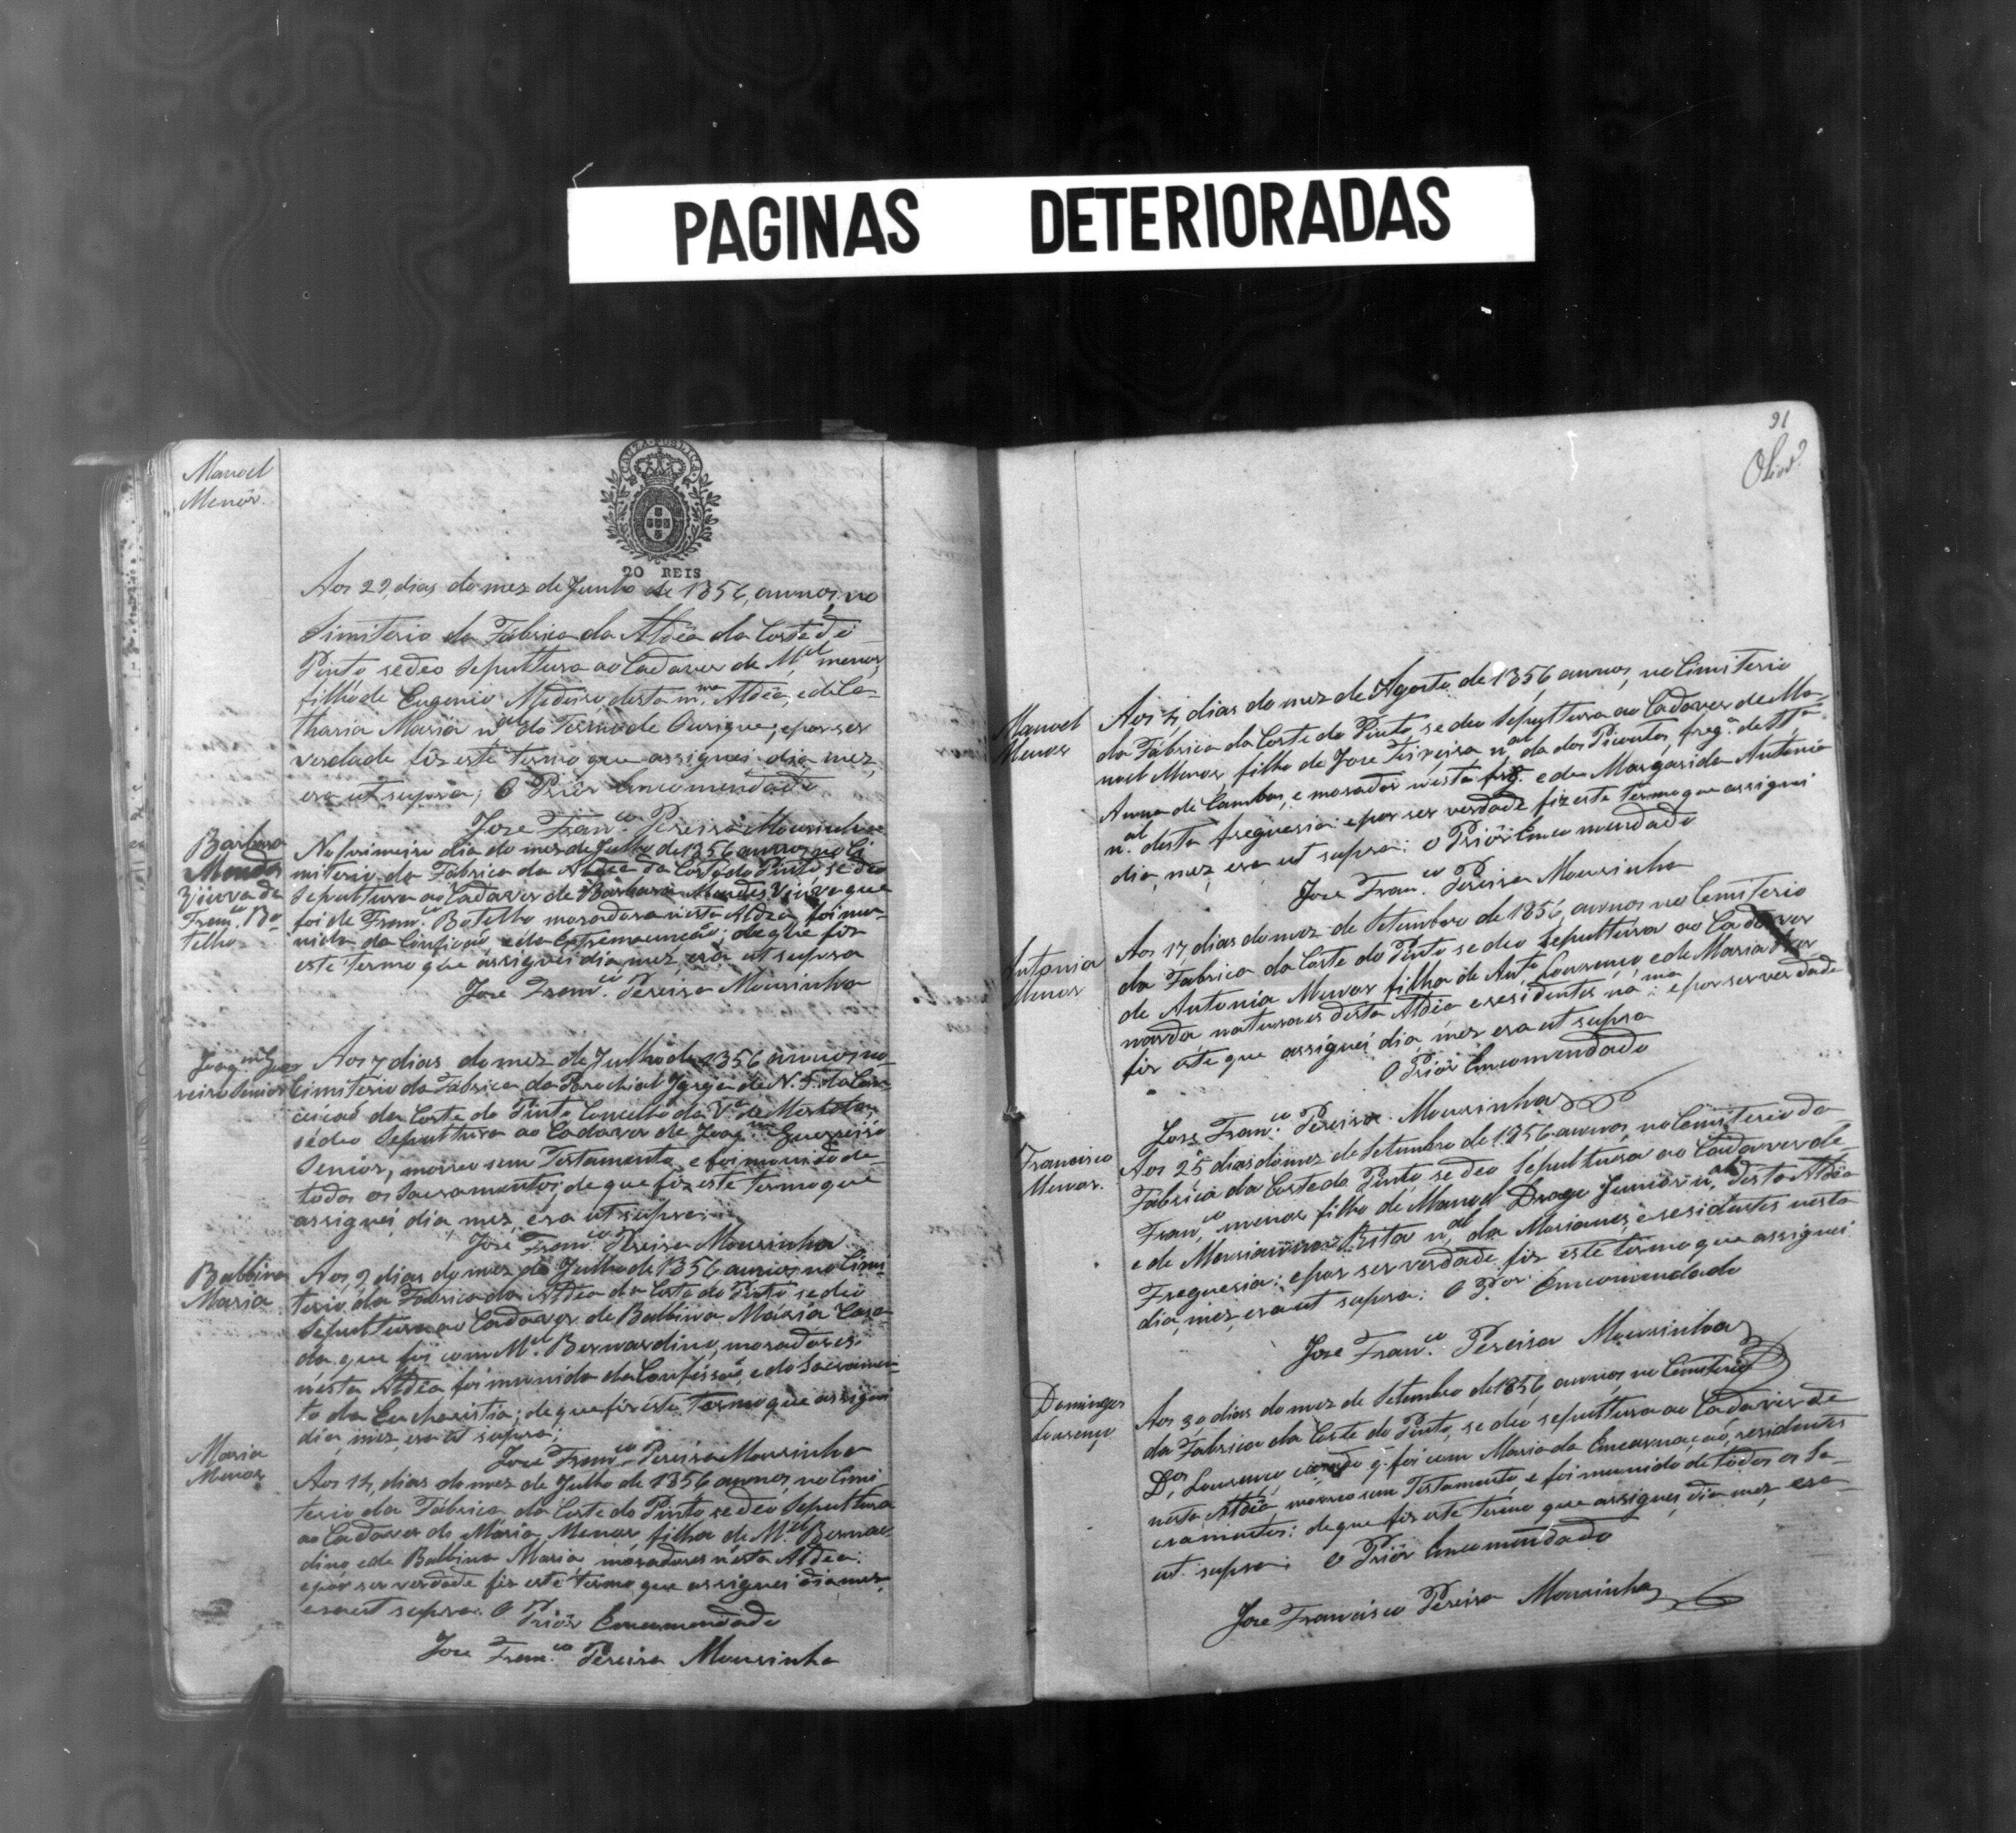 PAGINAS DETERIORADAS
Manoel
Menor.
CAUZA PUBLICA
20 REIS
Aos 22, dias do mez de Junho de 1856, annos, no
Simiterio da Fábrica da Aldêa da Corte do
Pinto sedeo Sepulttura ao Cadaver de M.el menor,
filho de Eugenio Medeiro, desta m.ma Aldêa, e de Ca-
tharia Maria n.al do Termo de Ourique; epor ser
verdade fiz este termo que assignei dia, mez,
era ut supra; O Priór Encomendado
Joze Fran.co Pereira Mousinho
Barbara
Mendes
Viuva de
Fran.co Bo-
telho
No primeiro dia do mez de Julho de 1856 annos, no Ci-
miterio da Fabrica da Aldêa da Corte do Pinto se deo
Sepulttura ao Cadaver de Barbara Mendes Viuva que
foi de Fran.co Botelho moradora nesta Aldêa, foi mu-
nida da Confição, e da Extremaunção; de que fiz
este termo que assignei dia mez, era ut supra
Joze Fran.co Pereira Mousinho
Joaq.m Guer
reiro Senior
Aos 7 dias do mez de Julho de 1856 annos, no
Cimiterio da Fábrica da Parochial Igreja de N. S. da Con-
ceicaõ da Corte do Pinto Concelho da V.a de Mertola,
sedeo Sepulttura ao Cadaver de Joaq.m Guerreiro
Senior, morreo sem Testamento, e foi munido de
todos os Sacramentos; de que fiz este termo que
assignei dia, mez, era ut supra;
Joze Fran.co Pereira Mousinho
Balbina
Maria
Aos 9 dias do mez de Julho de 1856 annos, no Cimi-
terio da Fabrica da Aldêa da Corte do Pinto se deo
Sepulttura ao Cadaver de Balbina Maria Caza-
da que foi com M.el Bernardino, moradores
nésta Aldêa foi munida da Confissaõ, e do Sacramen-
to da Eucharistia; de que fiz este termo que assignei
dia, mez, era ut supra;
Joze Fran.co Pereira Mousinho
Maria
Menor
Aos 14, dias do mez de Julho de 1856 annos, no Cimi-
terio da Fábrica da Corte do Pinto se deo Sepulttura
ao Cadaver de Maria, Menor, filha de M.el Bernar-
dino e de Balbina Maria, moradores nésta Aldea:
epór ser verdade fiz este termo que assignei dia mez,
era ut supra. O Priór Encomendado
Joze Fran.co Pereira Mousinho
91
Manoel
Menor
Aos 4, dias do mez de Agosto de 1856, annos, no Cimiterio
da Fábrica da Corte do Pinto, se deo Sepulttura ao Cadaver de Ma-
noel Menor, filho de Joze Teixeira n.al da dos Picoutos, freg.a de St.a
Anna de Cambas, e morador nesta frg. e de Margarida Antonia
n.al desta freguesia: epor ser verdade fiz este termo que assignei
dia, mez, era ut supra: O Priór Encomendado
Joze Fran.co Pereira Mousinho
Antonia
Menor
Aos 17, dias do mez de Setembro de 1856, annos no Cemiterio
da Fabrica da Corte do Pinto se deo Sepulttura ao Cadaver
de Antonia Menor filha de Ant.o Lourenço e de Maria Ber
narda, naturaes desta Aldêa e residentes na m.ma: e por ser verdade
fiz este que assignei dia, mez, era ut supra
O Priór Encomendado
Joze Fran.co Pereira Mousinho
Francisco
Menor.
Aos 25 dias do mez de Setembro de 1856 annos, no Cemiterio da
Fábrica da Corte do Pinto se deo Sepulttura ao Cadaver de
Fran.co, menor, filho de Manoel Drago Junior n.al desta Aldêa
e de Marianna Rita n.al da Marianes, e residentes nesta
Freguesia: epor ser verdade fiz este termo que assignei
dia, mez, era ut supra: O P.or Encomendado
Joze Fran.co Pereira Mousinho
Domingos
Lourenço
Aos 30 dias do mez de Setembro de 1856, annos, no Cemiterio
da Fabrica da Corte do Pinto, se deo sepulttura ao Cadaver de
D.os Lourenço cazado q foi com Maria da Encarnaçaõ, residentes
nesta Aldêa, morreo sem Testamento, e foi munido de todos os Sa-
cramentos: de que fiz este termo que assignei, dia, mez, era
ut supra; O Priór Encomendado
Joze Francisco Pereira Mousinho